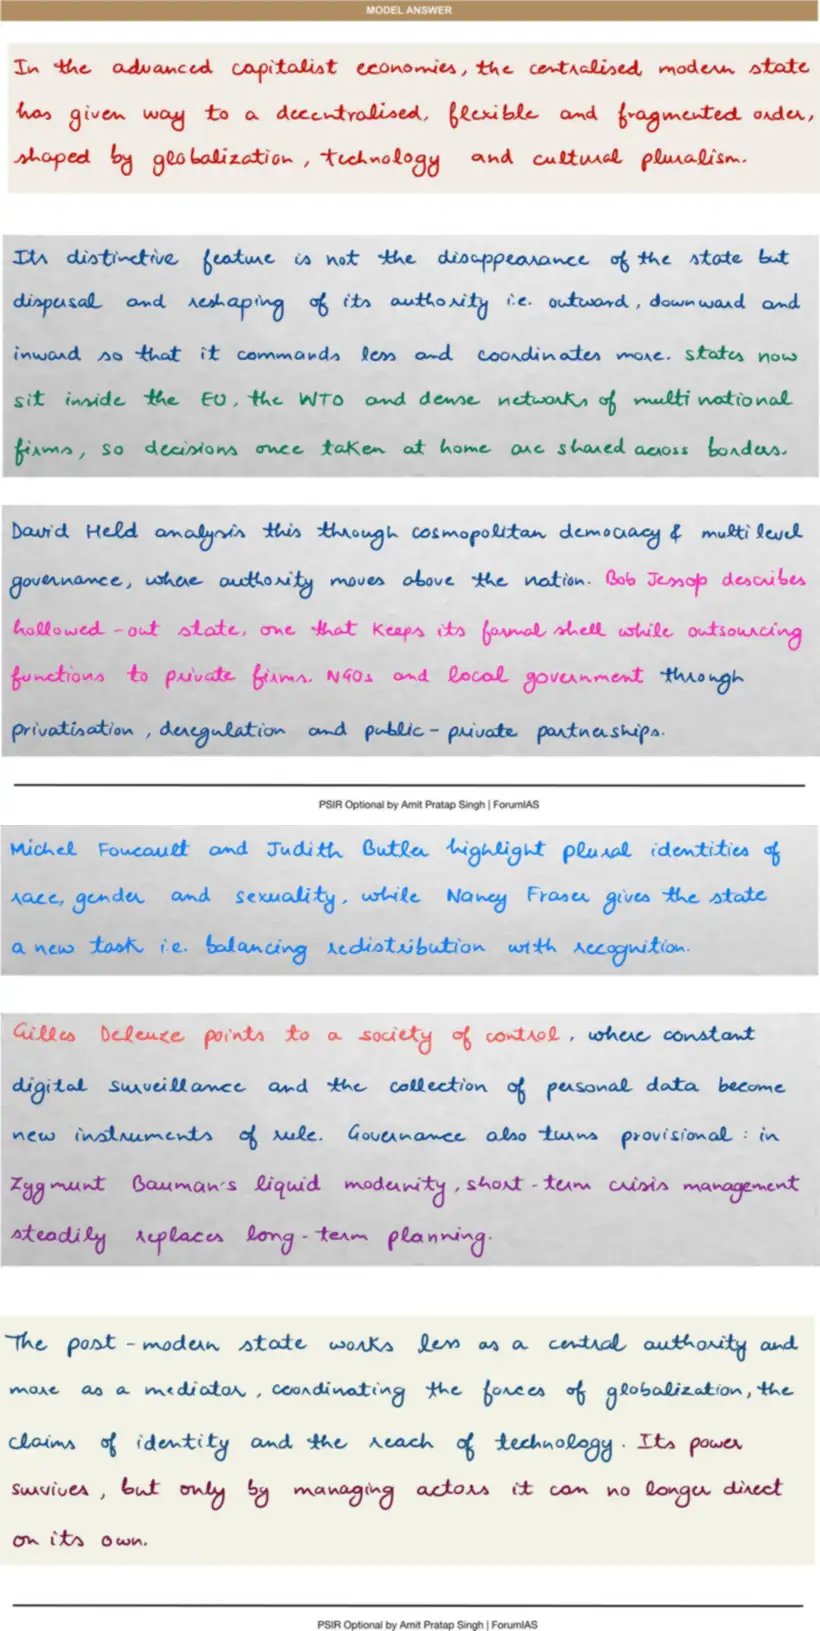 MODEL ANSWER
In the advanced capitalist economies, the centralised modern state
has given way to a decentralised, flexible and fragmented order,
shaped by globalization, technology and cultural pluralism.
Its distinctive feature is not the disappearance of the state but
dispersal and reshaping of its authority i.e. outward, downward and
inward so that it commands less and coordinates more. States now
sit inside the EU, the WTO and dense networks of multinational
firms, so decisions once taken at home are shared across borders.
David Held analysis this through cosmopolitan democracy & multilevel
governance, where authority moves above the nation. Bob Jessop describes
hollowed-out state, one that keeps its formal shell while outsourcing
functions to private firms. NGOs and local government through
privatisation, deregulation and public-private partnerships.
PSIR Optional by Amit Pratap Singh | ForumIAS
Michel Foucault and Judith Butler highlight plural identities of
race, gender and sexuality, while Nancy Fraser gives the state
a new task i.e. balancing redistribution with recognition.
Gilles Deleuze points to a society of control, where constant
digital surveillance and the collection of personal data become
new instruments of rule. Governance also turns provisional: in
Zygmunt Bauman's liquid modernity, short-term crisis management
steadily replaces long-term planning.
The post-modern state works less as a central authority and
more as a mediator, coordinating the forces of globalization, the
claims of identity and the reach of technology. Its power
survives, but only by managing actors it can no longer direct
on its own.
PSIR Optional by Amit Pratap Singh | ForumIAS